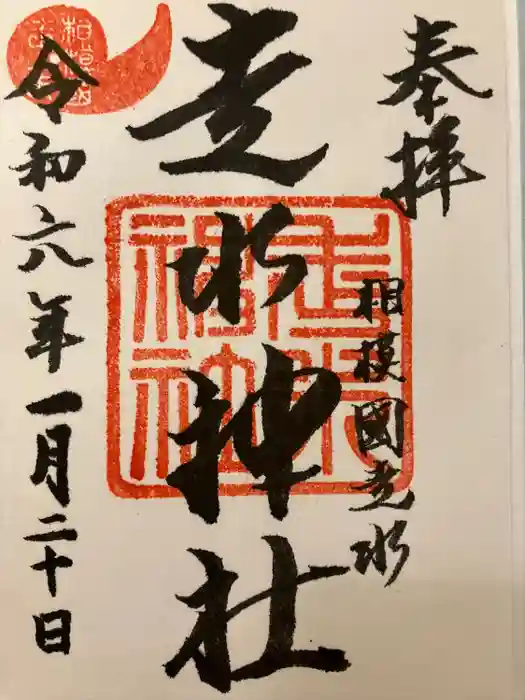 奉拝
相模國走水
走水神社
令和六年一月二十日
走水神社